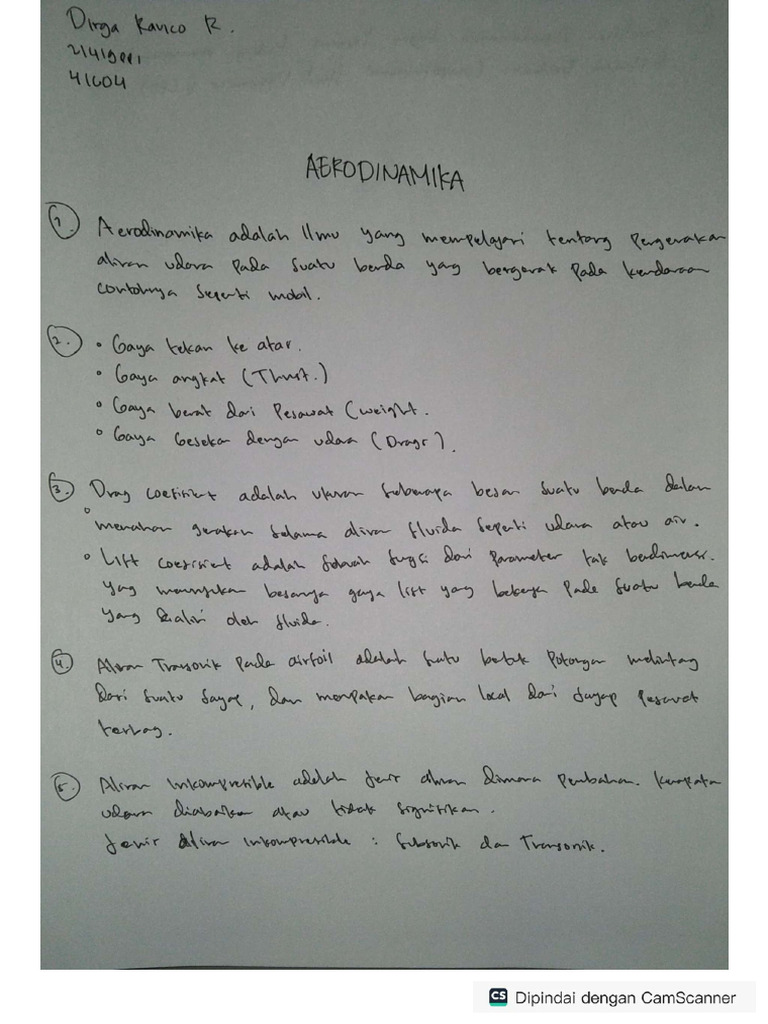 Dirga Ravico R.
21419001
41604
AERODINAMIKA
1. Aerodinamika adalah Ilmu yang mempelajari tentang Pergerakan
aliran udara pada suatu benda yang bergerak pada kendaraan
contohnya seperti mobil.
2. • Gaya tekan ke atas.
• Gaya angkat (Thrust.)
• Gaya berat dari Pesawat (weight.
• Gaya Gesekan dengan udara (Drags).
3. Drag coefisient adalah ukuran seberapa besar suatu benda dalam
• menahan gerakan selama aliran fluida seperti udara atau air.
• Lift coefisient adalah sebuah fungsi dari Parameter tak berdimensi.
yang menunjukan besarnya gaya lift yang bekerja Pada suatu benda
yang dialiri oleh fluida.
4. Aliran Transonik pada airfoil adalah suatu bentuk Potongan melintang
dari suatu sayap, dan merupakan bagian local dari sayap pesawat
terbang.
5. Aliran Inkompresible adalah jenis aliran dimana perubahan. kerapatan
udara diabaikan atau tidak signifikan.
Jenis Aliran inkompresible : Subsonik dan Transonik.
CS Dipindai dengan CamScanner